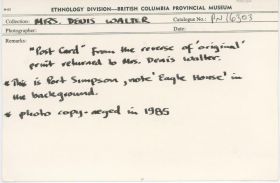 ETHNOLOGY DIVISION—BRITISH COLUMBIA PROVINCIAL MUSEUM
Collection: MRS. DENIS WALTER Catalogue No.: PN 16303
Photographer: Date:
Remarks:
"Post Card" from the reverse of 'original'
print returned to Mrs. Denis Walter.
* This is Port Simpson, note 'Eagle House' in
the background.
* photo copy-neged in 1985